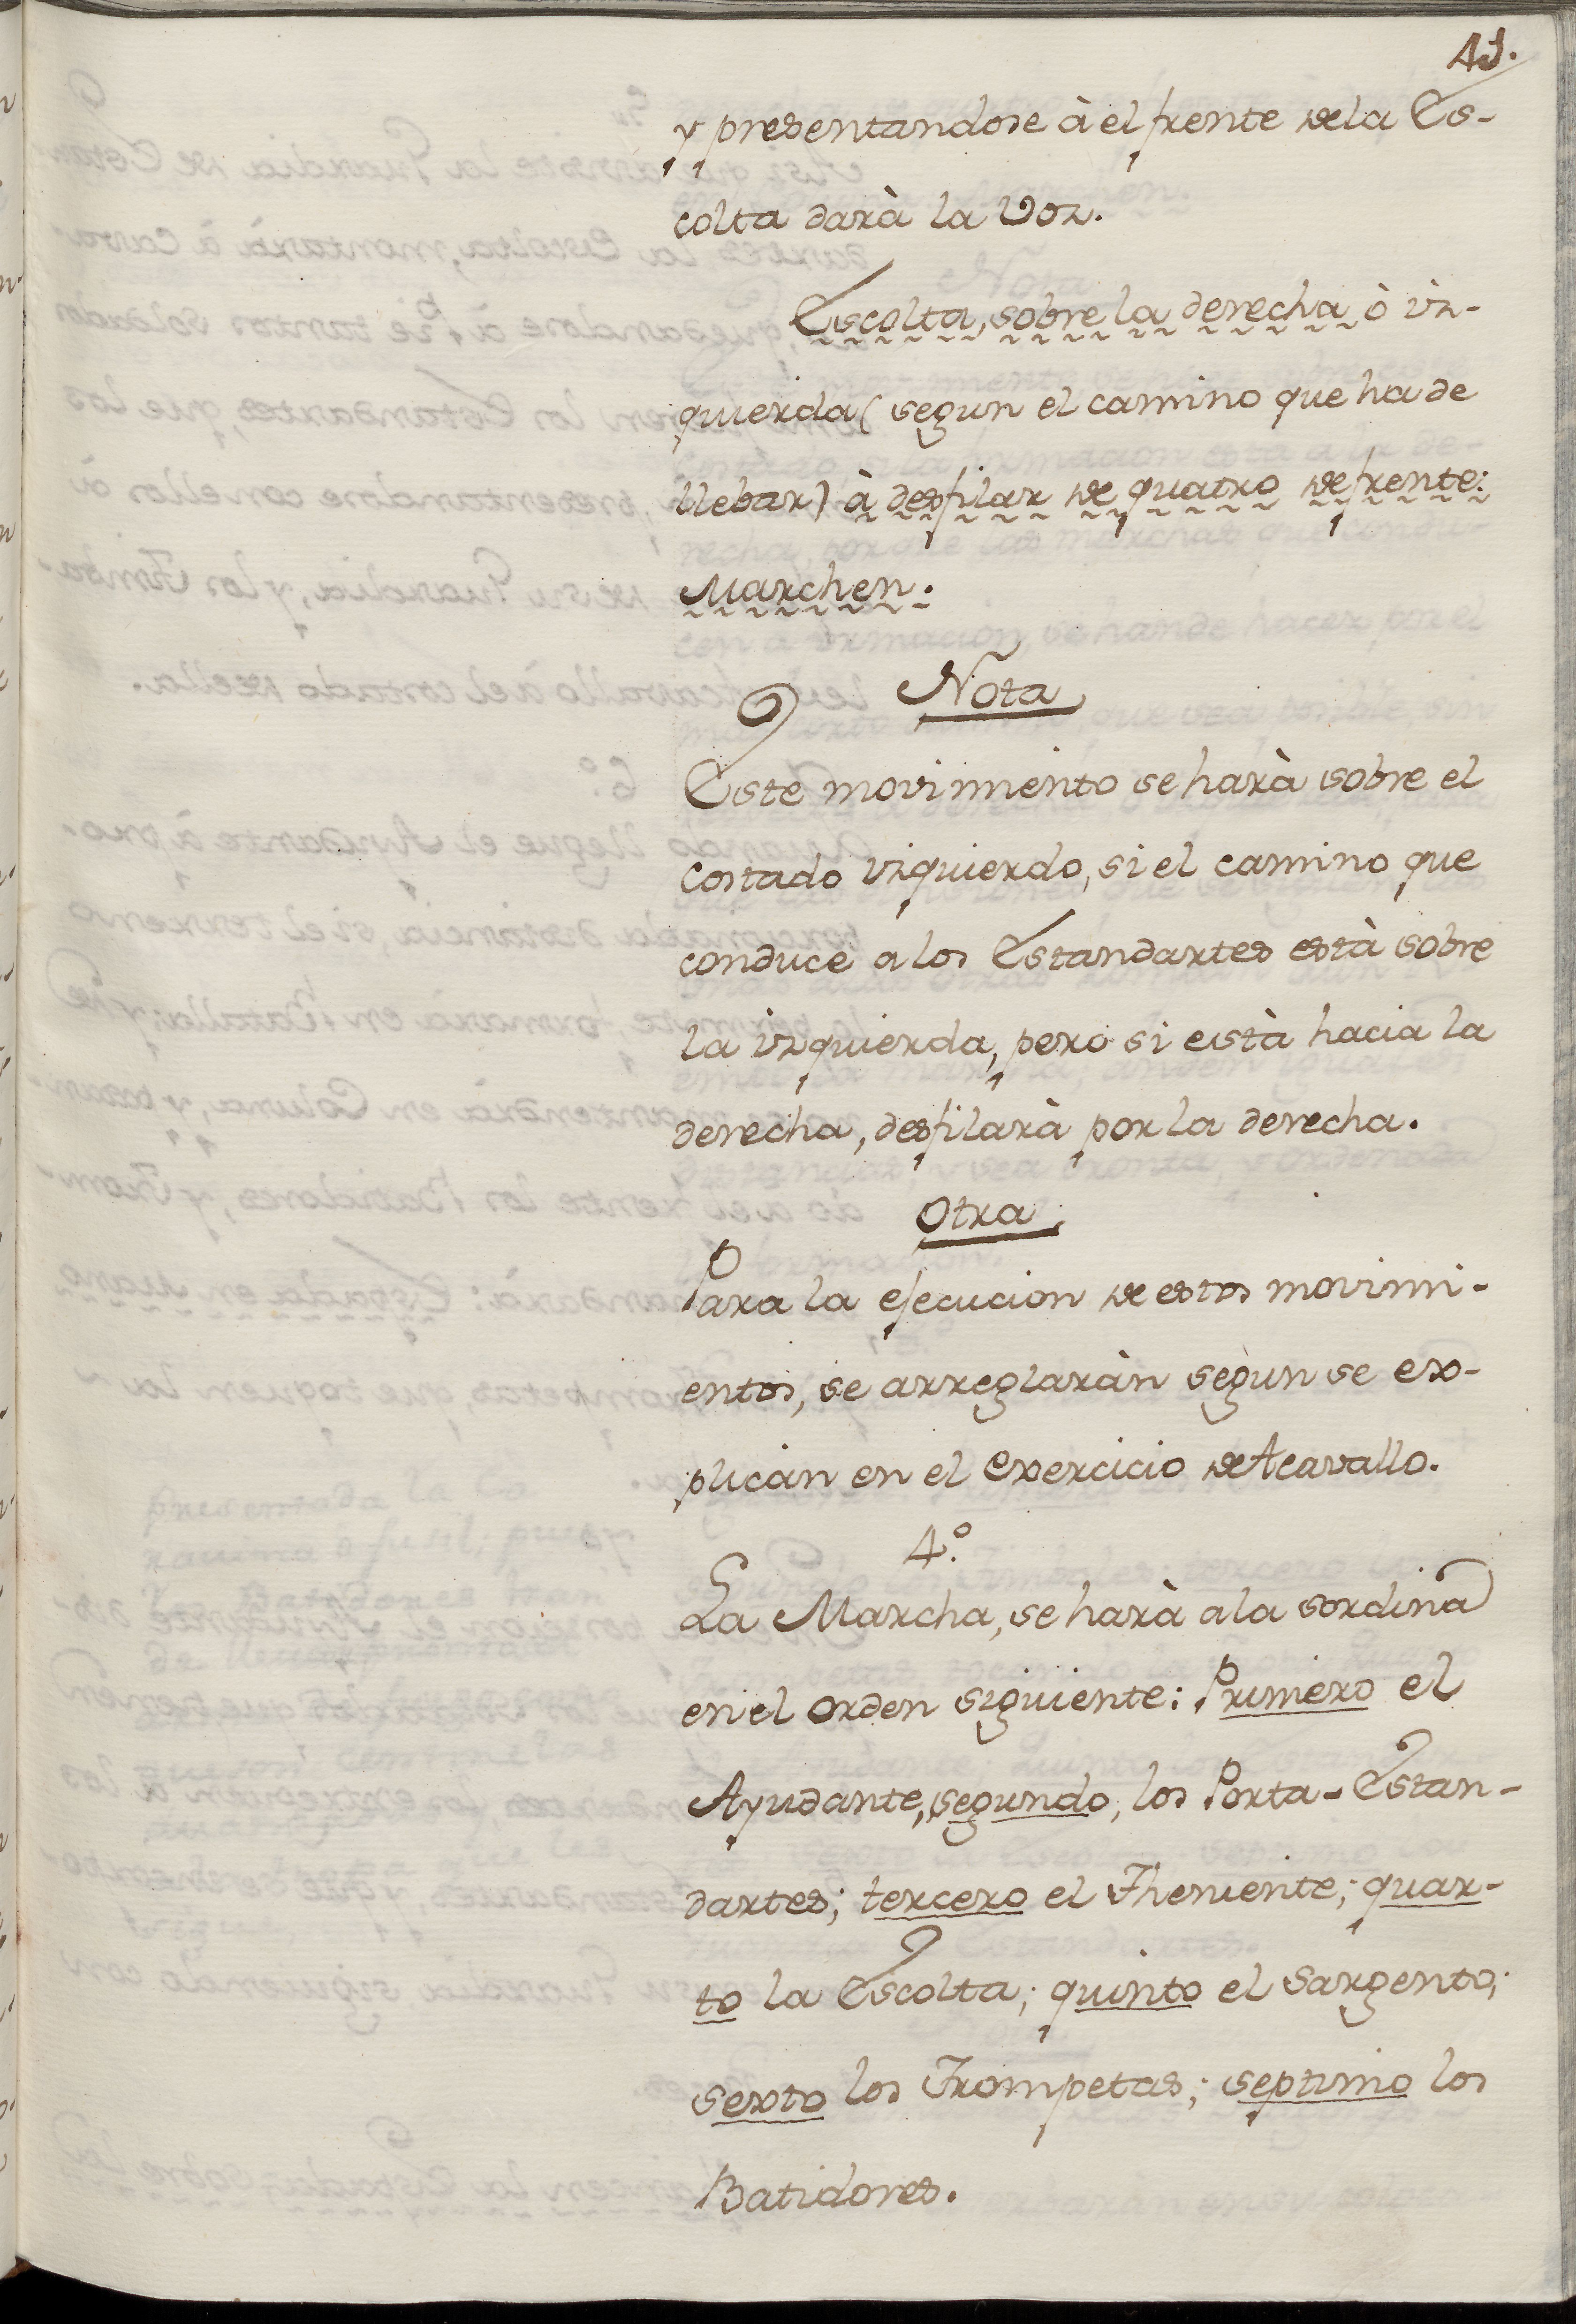 41.
y presentandose à el frente de la Es-
colta darà la Voz.
Escolta, sobre la derecha ò iz-
quierda (segun el camino que ha de
llebar) à desfilar de quatro de frente:
Marchen.
Nota
Este movimiento se harà sobre el
Costado izquierdo, si el camino que
conduce a los Estandartes està sobre
la izquierda, pero si està hacia la
derecha, desfilarà por la derecha.
Otra
Para la ejecucion de estos movimi-
entos, se arreglaràn segun se ex-
plican en el exercicio de Acavallo.
4.º
La Marcha, se harà a la sordina
en el orden siguiente: Primero el
Ayudante, segundo, los Porta-Estan-
dartes; tercero el Theniente; quar-
to la Escolta; quinto el Sargento;
sexto los Trompetas; septimo los
Batidores.